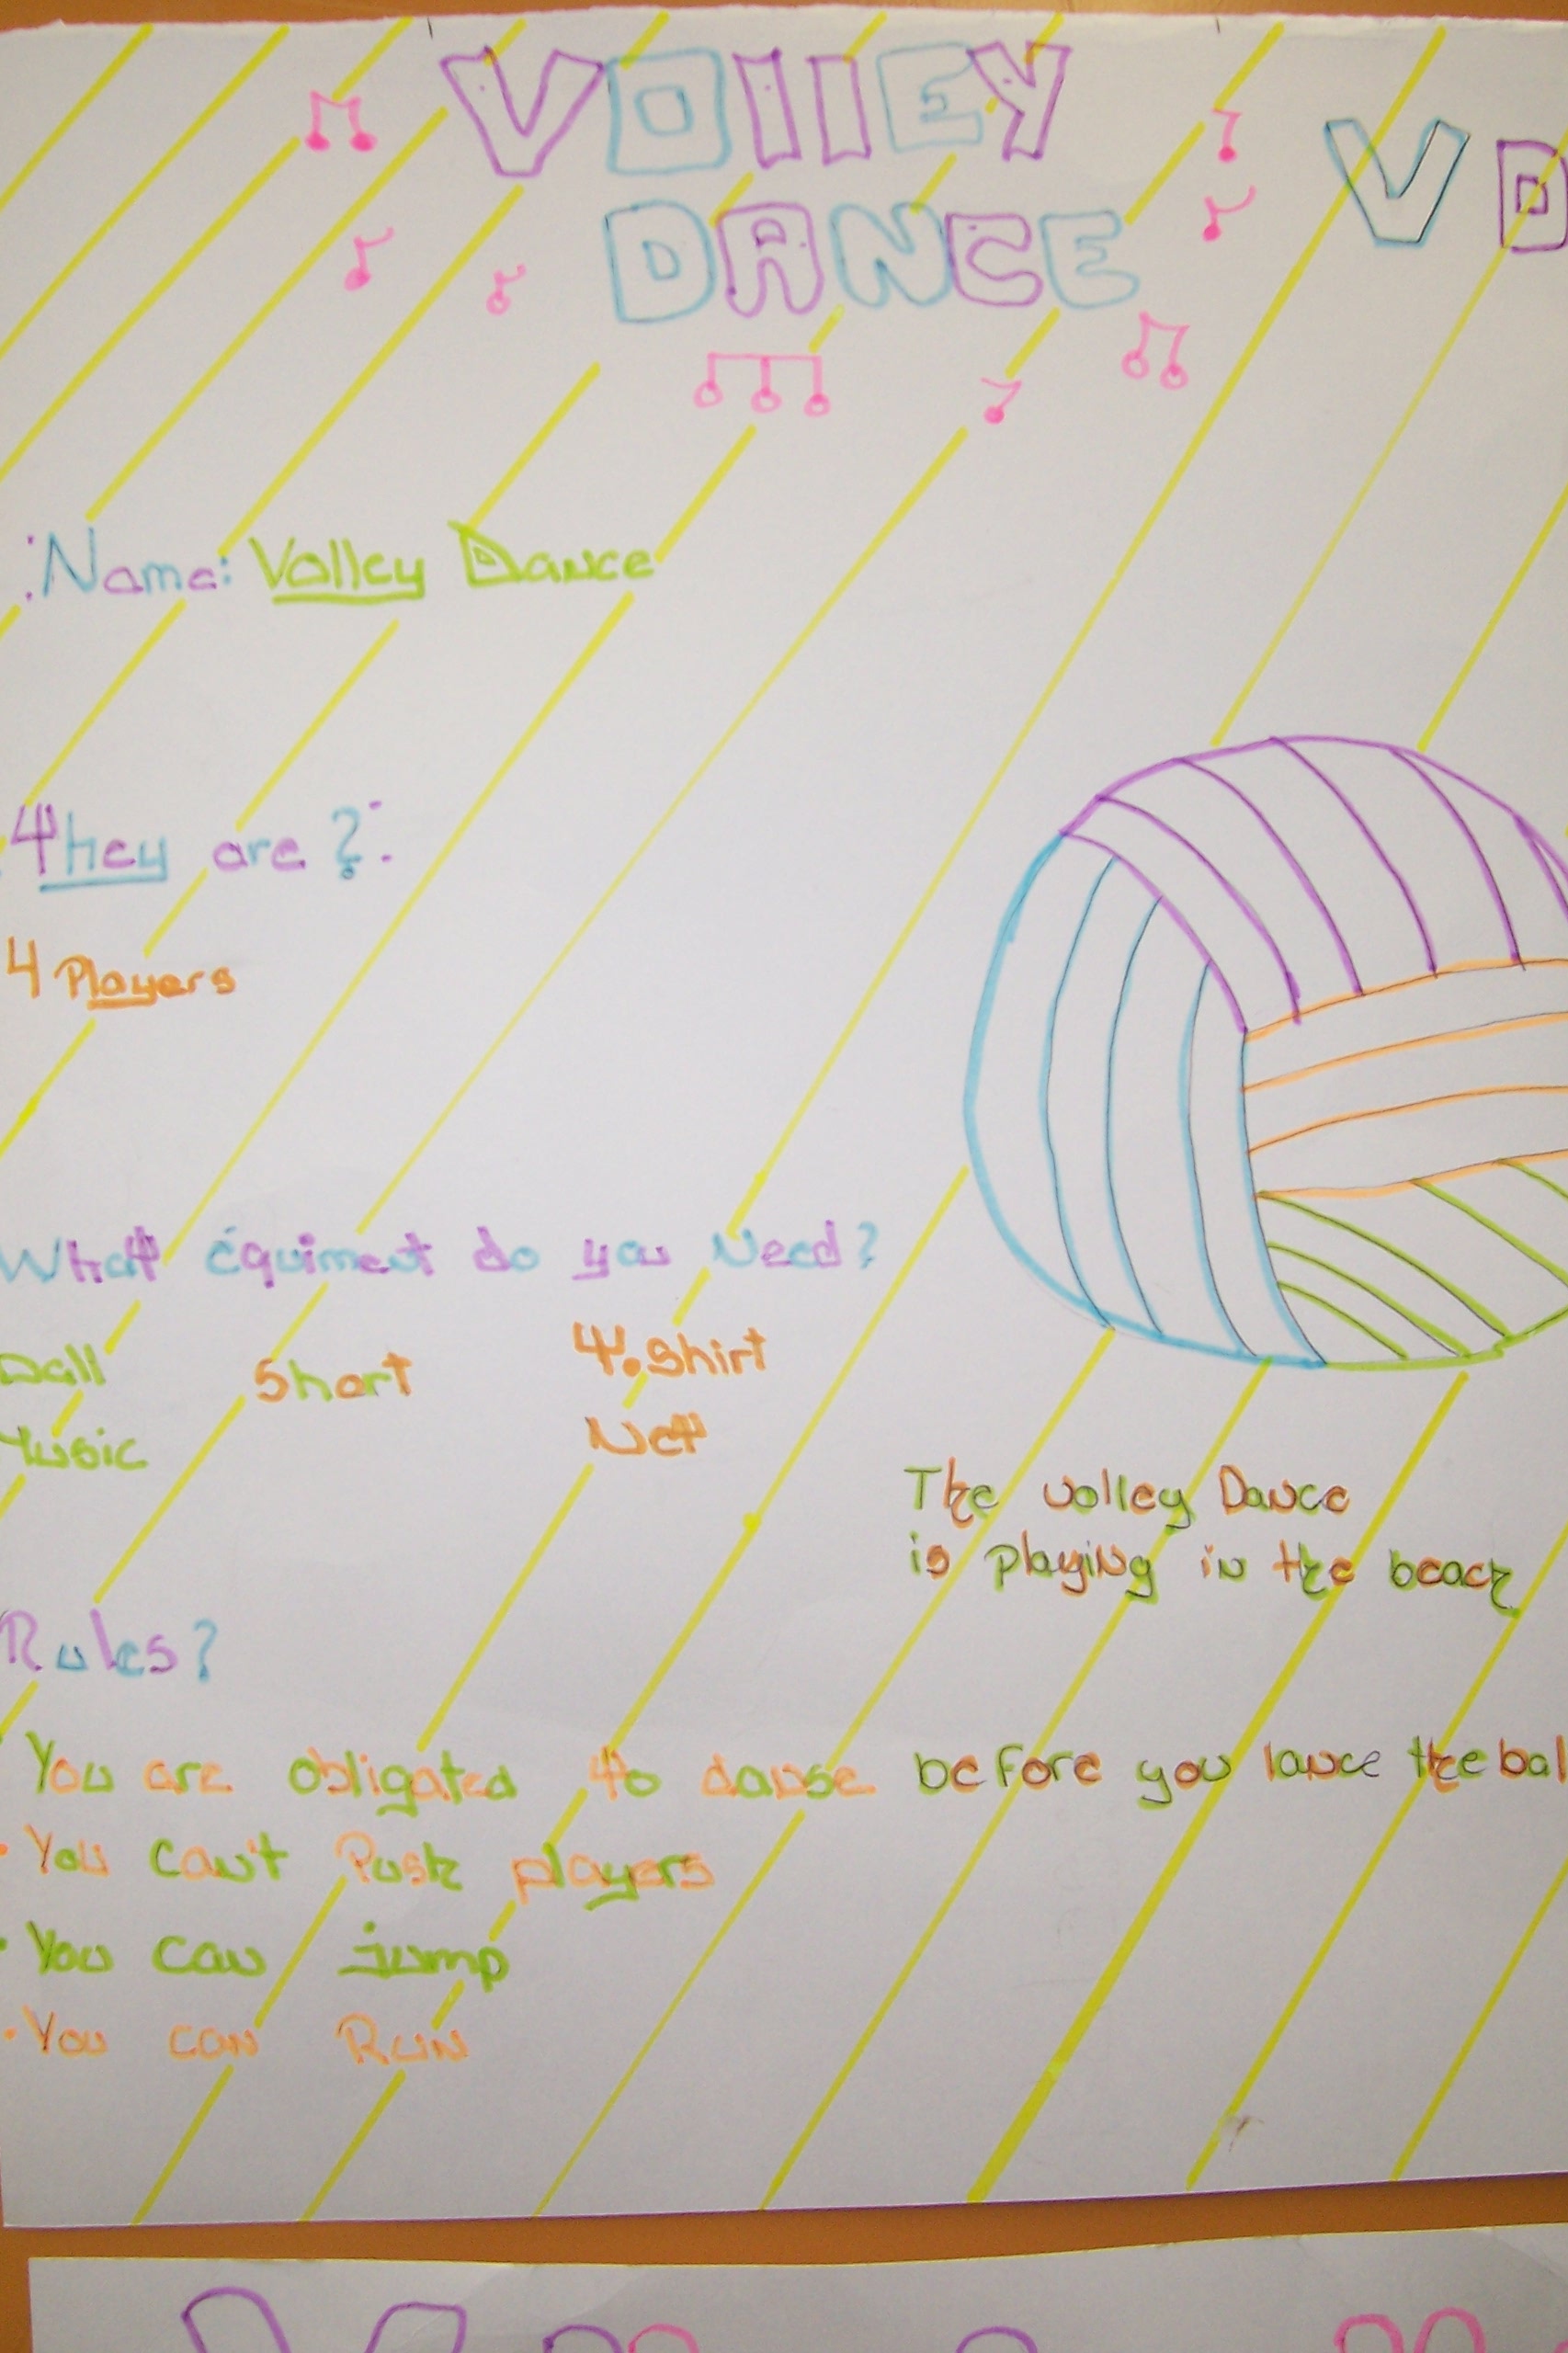 VOllEY
DANCE
VD
:Name: Volley Dance
They are ?:
4 Players
What équiment do you Need?
Ball Short T.Shirt
Music Net
The volley Dance
is playing in the beach
Rules?
You are obligated to danse before you lance the bal
• You can't Push players
• You can jump
• You can Run